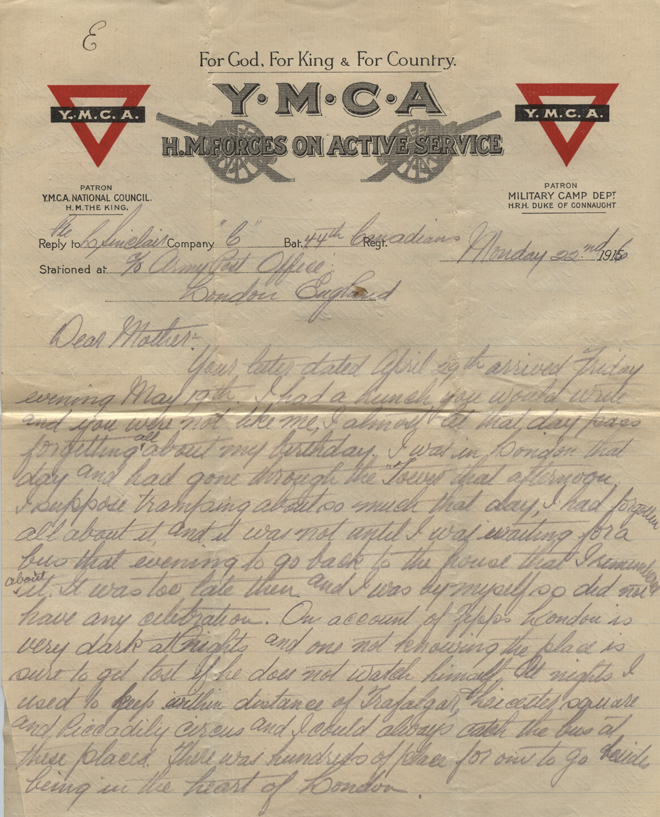 E
For God, For King & For Country.
Y·M·C·A
H.M. FORCES ON ACTIVE SERVICE
Y.M.C.A.
Y.M.C.A.
PATRON
Y.M.C.A. NATIONAL COUNCIL.
H.M. THE KING.
PATRON
MILITARY CAMP DEPT
H.R.H. DUKE OF CONNAUGHT
Pte
Reply to L Sinclair Company "C" Bat. 44th Regt. Canadians Monday 22nd 1916
Stationed at c/o Army Post Office
London England
Dear Mother:-
Your later dated April 29th arrived Friday
evening May 19th. I had a hunch you would write
and you were not like me, I almost let that day pass
forgetting all about my birthday. I was in London that
day and had gone through the Tower that afternoon,
I suppose tramping about so much that day, I had forgotten
all about it, and it was not until I was waiting for a
bus that evening to go back to the house that I
about it. It was too late then and I was by myself so did not
have any celebration. On account of Zepps London is
very dark at nights and one not knowing the place is
sure to get lost if he does not watch himself. At nights I
used to keep within distance of Trafalgar, Leicester square
and Piccadily circus and I could always catch the bus at
these places. There was hundreds of place for one to go beside
being in the heart of London.